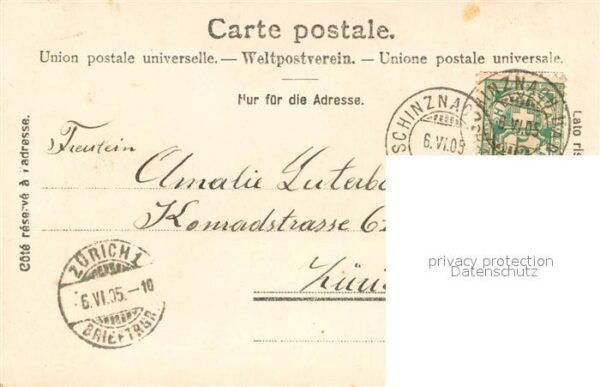 Carte postale.
Union postale universelle. — Weltpostverein. — Unione postale universale.
Nur für die Adresse.
Côté réservé à l'adresse.
Lato ris
SCHINZNACH
6.VI.05
SCHINZNACH
VI.05
Fräulein
Amalie Luterba
Konradstrasse 6
Züri
ZÜRICH 1
6.VI.05.-10
BRIEFTRGR.
privacy protection
Datenschutz